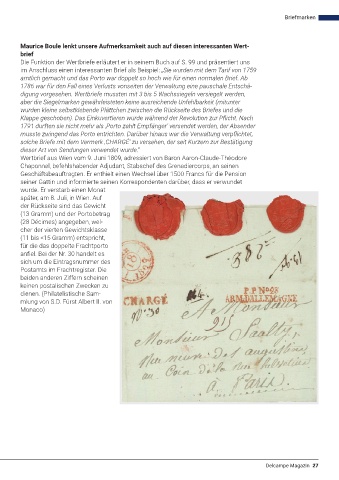 Briefmarken
Maurice Boule lenkt unsere Aufmerksamkeit auch auf diesen interessanten Wert-
brief
Die Funktion der Wertbriefe erläutert er in seinem Buch auf S. 99 und präsentiert uns
im Anschluss einen interessanten Brief als Beispiel: „Sie wurden mit dem Tarif von 1759
amtlich gemacht und das Porto war doppelt so hoch wie für einen normalen Brief. Ab
1786 war für den Fall eines Verlusts vonseiten der Verwaltung eine pauschale Entschä-
digung vorgesehen. Wertbriefe mussten mit 3 bis 5 Wachssiegeln versiegelt werden,
aber die Siegelmarken gewährleisteten keine ausreichende Unfehlbarkeit (mitunter
wurden kleine selbstklebende Plättchen zwischen die Rückseite des Briefes und die
Klappe geschoben). Das Einkuvertieren wurde während der Revolution zur Pflicht. Nach
1791 durften sie nicht mehr als ‚Porto zahlt Empfänger' versendet werden, der Absender
musste zwingend das Porto entrichten. Darüber hinaus war die Verwaltung verpflichtet,
solche Briefe mit dem Vermerk ‚CHARGÉ' zu versehen, der seit Kurzem zur Bestätigung
dieser Art von Sendungen verwendet wurde."
Wertbrief aus Wien vom 9. Juni 1809, adressiert von Baron Aaron-Claude-Théodore
Chaponnel, befehlshabender Adjutant, Stabschef des Grenadiercorps, an seinen
Geschäftsbeauftragten. Er enthielt einen Wechsel über 1500 Francs für die Pension
seiner Gattin und informierte seinen Korrespondenten darüber, dass er verwundet
wurde. Er verstarb einen Monat
später, am 8. Juli, in Wien. Auf
der Rückseite sind das Gewicht
(13 Gramm) und der Portobetrag
(28 Décimes) angegeben, wel-
cher der vierten Gewichtsklasse
(11 bis <15 Gramm) entspricht,
für die das doppelte Frachtporto
anfiel. Bei der Nr. 30 handelt es
sich um die Eintragsnummer des
Postamts im Frachtregister. Die
beiden anderen Ziffern scheinen
keinen postalischen Zwecken zu
dienen. (Philatelistische Sam-
mlung von S.D. Fürst Albert II. von
Monaco)
CHARGÉ
P.P.Nº98
ARM.D'ALLEMAGNE
A Monsieur
Monsieur
rue neuve des augustins
au Coin de la rue
a Paris.
Delcampe Magazin 27